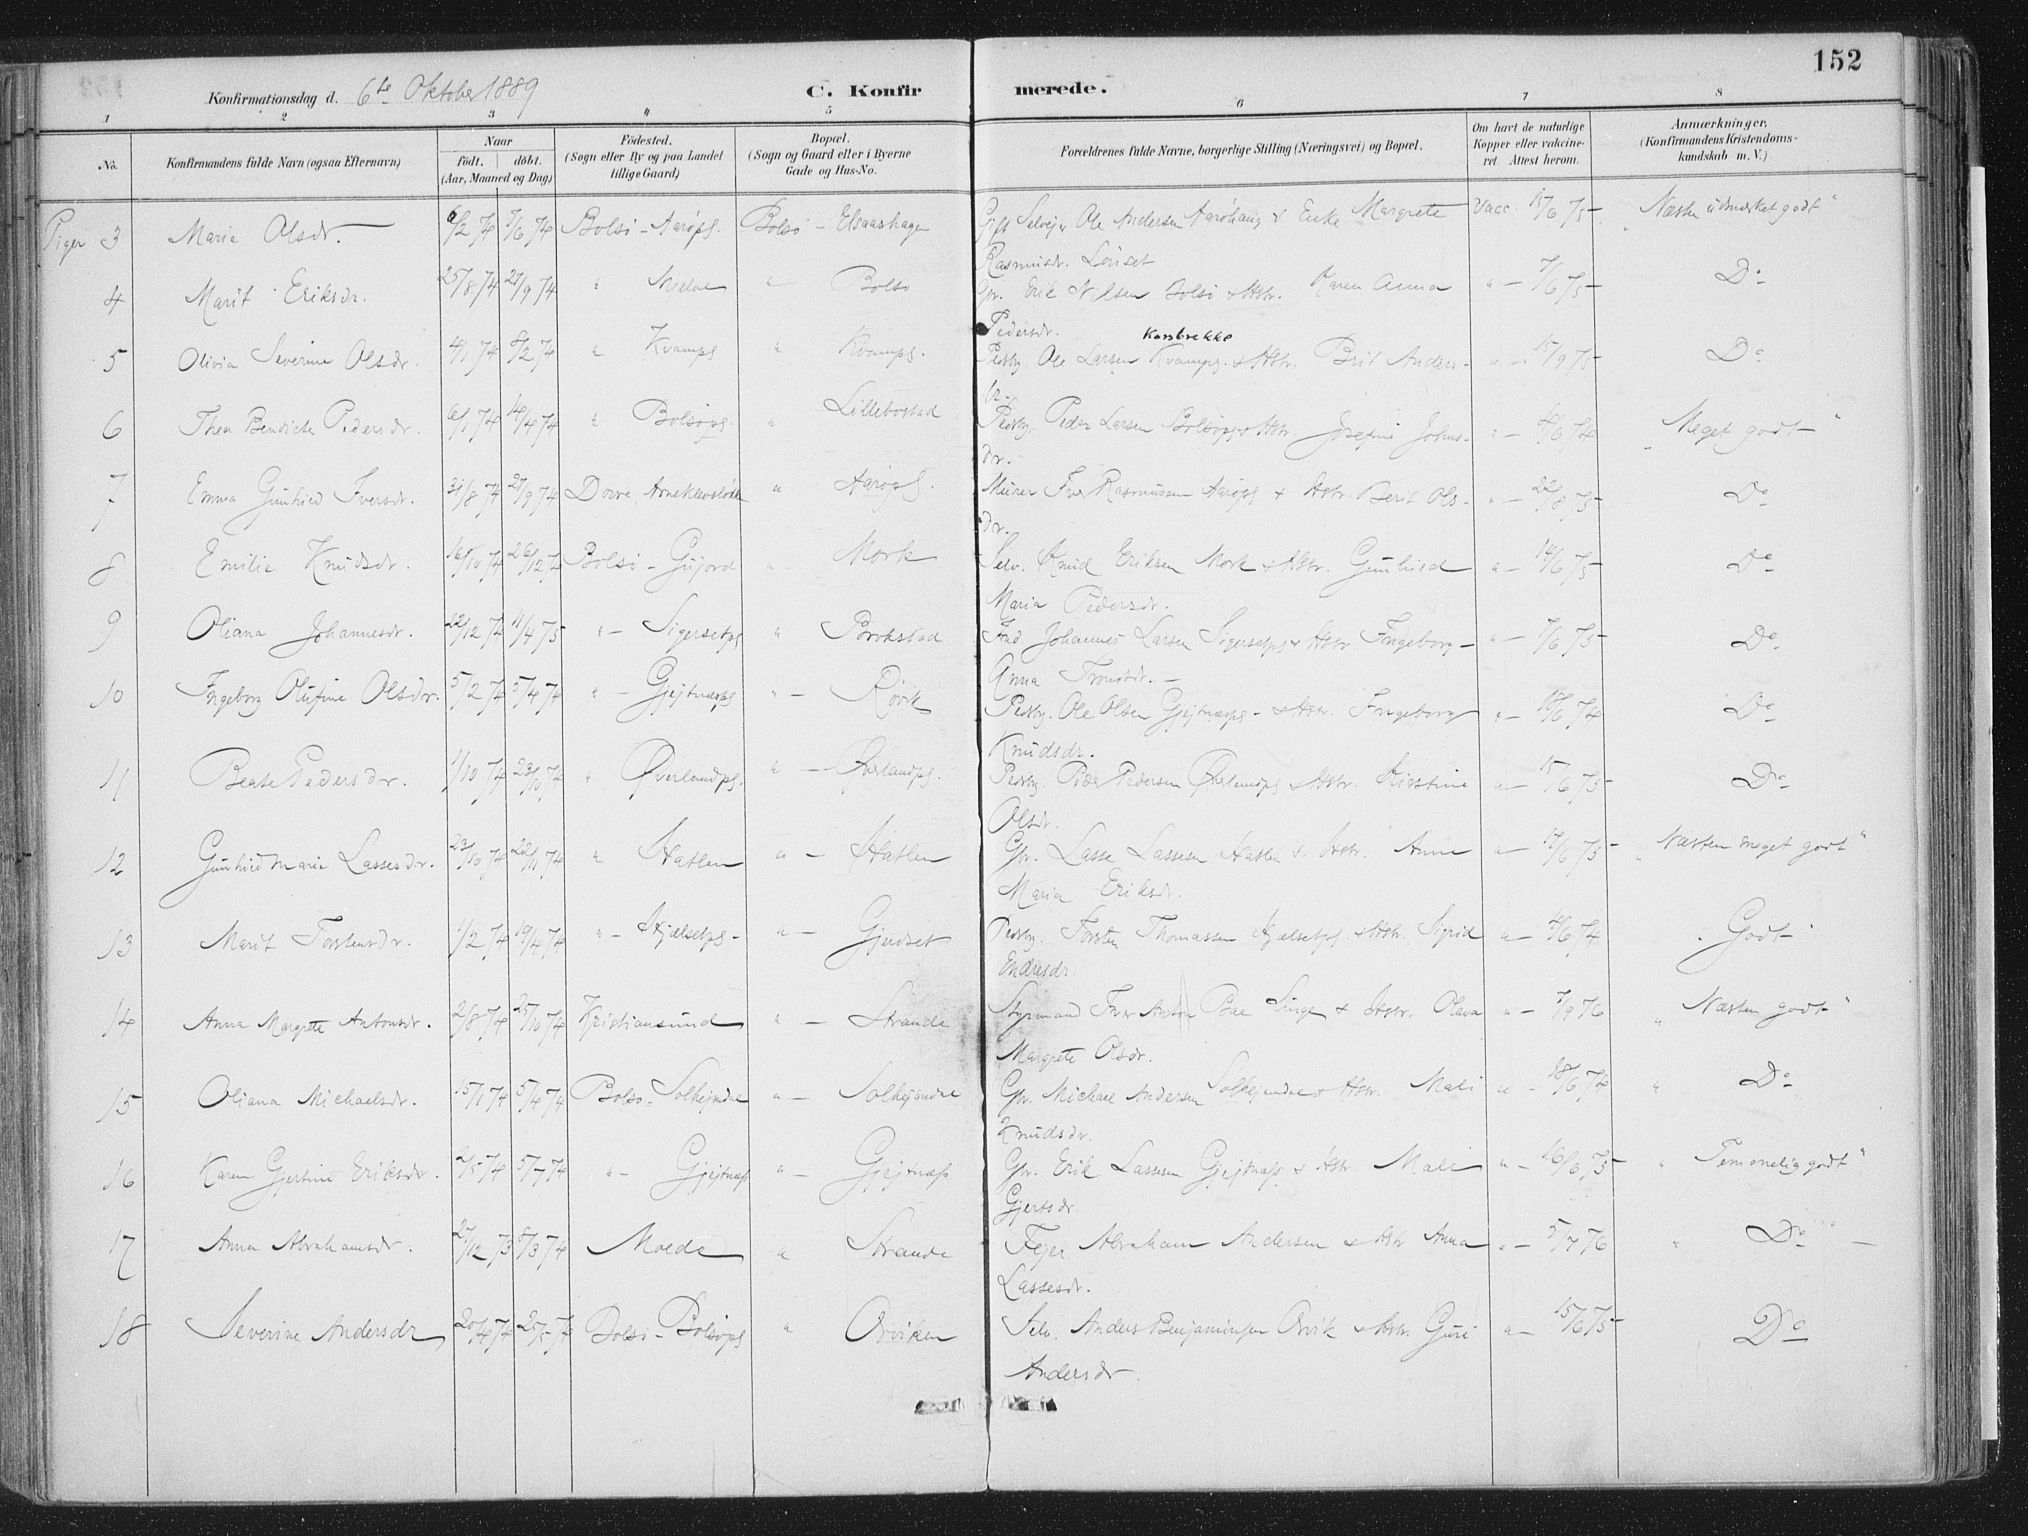 152
Konfirmationsdag d. 6te Oktober 1889 C. Konfirmerede.
1 2 3 4 5 6 7 8
No. Konfirmandens fulde Navn (ogsaa Efternavn) Naar födt. döbt. (Aar, Maaned og Dag) Födested. (Sogn eller By og paa Landet tillige Gaard) Bopæl. (Sogn og Gaard eller i Byerne Gade og Hus-No. Forældrenes fulde Navne, borgerlige Stilling (Næringsvei) og Bopæl. Om havt de naturlige Kopper eller vakcineret. Attest herom. Anmærkninger. (Konfirmandens Kristendomskundskab m. V.)
Piger 3 Marie Olsdr. 6/2 74 7/6 74 Bolsö - Aaröpl. Bolsö - Elsaashagen Gift Selvej. Ole Andersen Aaröhaug & Enke Margrete Vacc. 15/6 75 "Næsten udmærket godt"
Rasmusdr. Löriset
4 Marit Eriksdr. 25/8 74 27/9 74 " " Bolsö Gbr. Erik Nilsen Bolsö & Hstr. Karen Anna " - 7/6 75 Do
Pedersdr.
Korsbrekke
5 Olivia Severine Olsdr. 4/1 74 8/2 74 " Kvampl " Kvampl. Pladsbg. Ole Larsen Kvampl. & Hstr. Brit Anders- " - 15/9 75 Do
dr.
6 Thea Bendicte Pedersdr. 6/1 74 14/4 74 " Bolsöpl. " Lillebostad Pladsbg. Peder Larsen Bolsöpl & Hstr. Josefine Johns- " - 4/6 74 "Meget godt"
dr.
7 Emma Gunhild Iversdr. 31/8 74 27/9 74 Dovre, " Aaröpl. Murer Iver Rasmussen Aaröpl & Hstr. Berit Ols- " - 22/8 75 Do
dr.
8 Emilie Knudsdr. 16/10 74 26/12 74 Bolsö - Gujord " Mork Selv. Knud Eriksen Mork & Hstr. Gunhild " - 14/6 75 Do
Maria Pedersdr.
9 Oliana Johannesdr. 22/12 74 11/4 75 " - Sigersetpl " Brokstad Ind. Johannes Larsen Sigersetpl & Hstr Ingeborg- " - 7/6 75 Do
Anna Tronsdr. -
10 Ingeborg Olufine Olsdr. 5/2 74 5/4 74 " - Gjejtnæspl " - Rövik Pladsbg. Ole Olsen Gjejtnæspl - & Hstr. Ingeborg " - 18/6 74 Do
Knudsdr.
11 Beate Pedersdr. 1/10 74 23/10 74 " Øverlandpl. " - Øverlandpl. Pladsbg. Peder Pedersen Øverlandpl & Hstr. Kirstine " - 15/6 75 Do
Olsdr.
12 Gunhild Marie Lassesdr. 23/10 74 22/11 74 " Hatlen " - Hatlen Gbr. Lasse Lassesen Hatlen & Hstr. Anne " - 17/6 75 "Næsten meget godt"
Maria Eriksdr.
13 Marit Torstensdr. 1/2 74 19/4 74 " - Hjælsetpl - " - Gjendset Pladsbg. Torsten Thomassen Hjælsetpl. & Hstr. Sigrid " - 4/6 74 "Godt"
Endresdr.
14 Anna Margrete Antonsdr. 2/8 74 25/10 74 Kristiansund " - Strande Styrmand Iver Anton Bae Linge & Hstr. Olava " - 7/9 76 "Næsten godt"
Margrete Olsdr.
15 Oliana Michaelsdr. 15/1 74 5/4 74 Bolsö - Solhejmdal " - Solhejmdal Gbr. Michael Andersen Solhejmdal & Hstr. Mali " - 18/6 74 " Do
Knudsdr.
16 Karen Gjertine Eriksdr. 2/5 74 5/7 74 " - Gjejtnæs " - Gjejtnæs Gbr. Erik Lassesen Gjejtnæs & Hstr. Mali " - 16/6 75 "Temmelig godt"
Gjertsdr.
17 Anna Abrahamsdr. 27/12 73 8/3 74 Molde " Strande Fejer Abraham Andersen & Hstr Anna " - 5/7 76 " Do -
Lassesdr.
18 Severine Andersdr 20/4 74 25/5 74 Bolsö - Bolsöpl " Örviken Selv. Anders Benjaminsen Örvik & Hstr. Guri " - 15/6 75 Do
Andersdr.